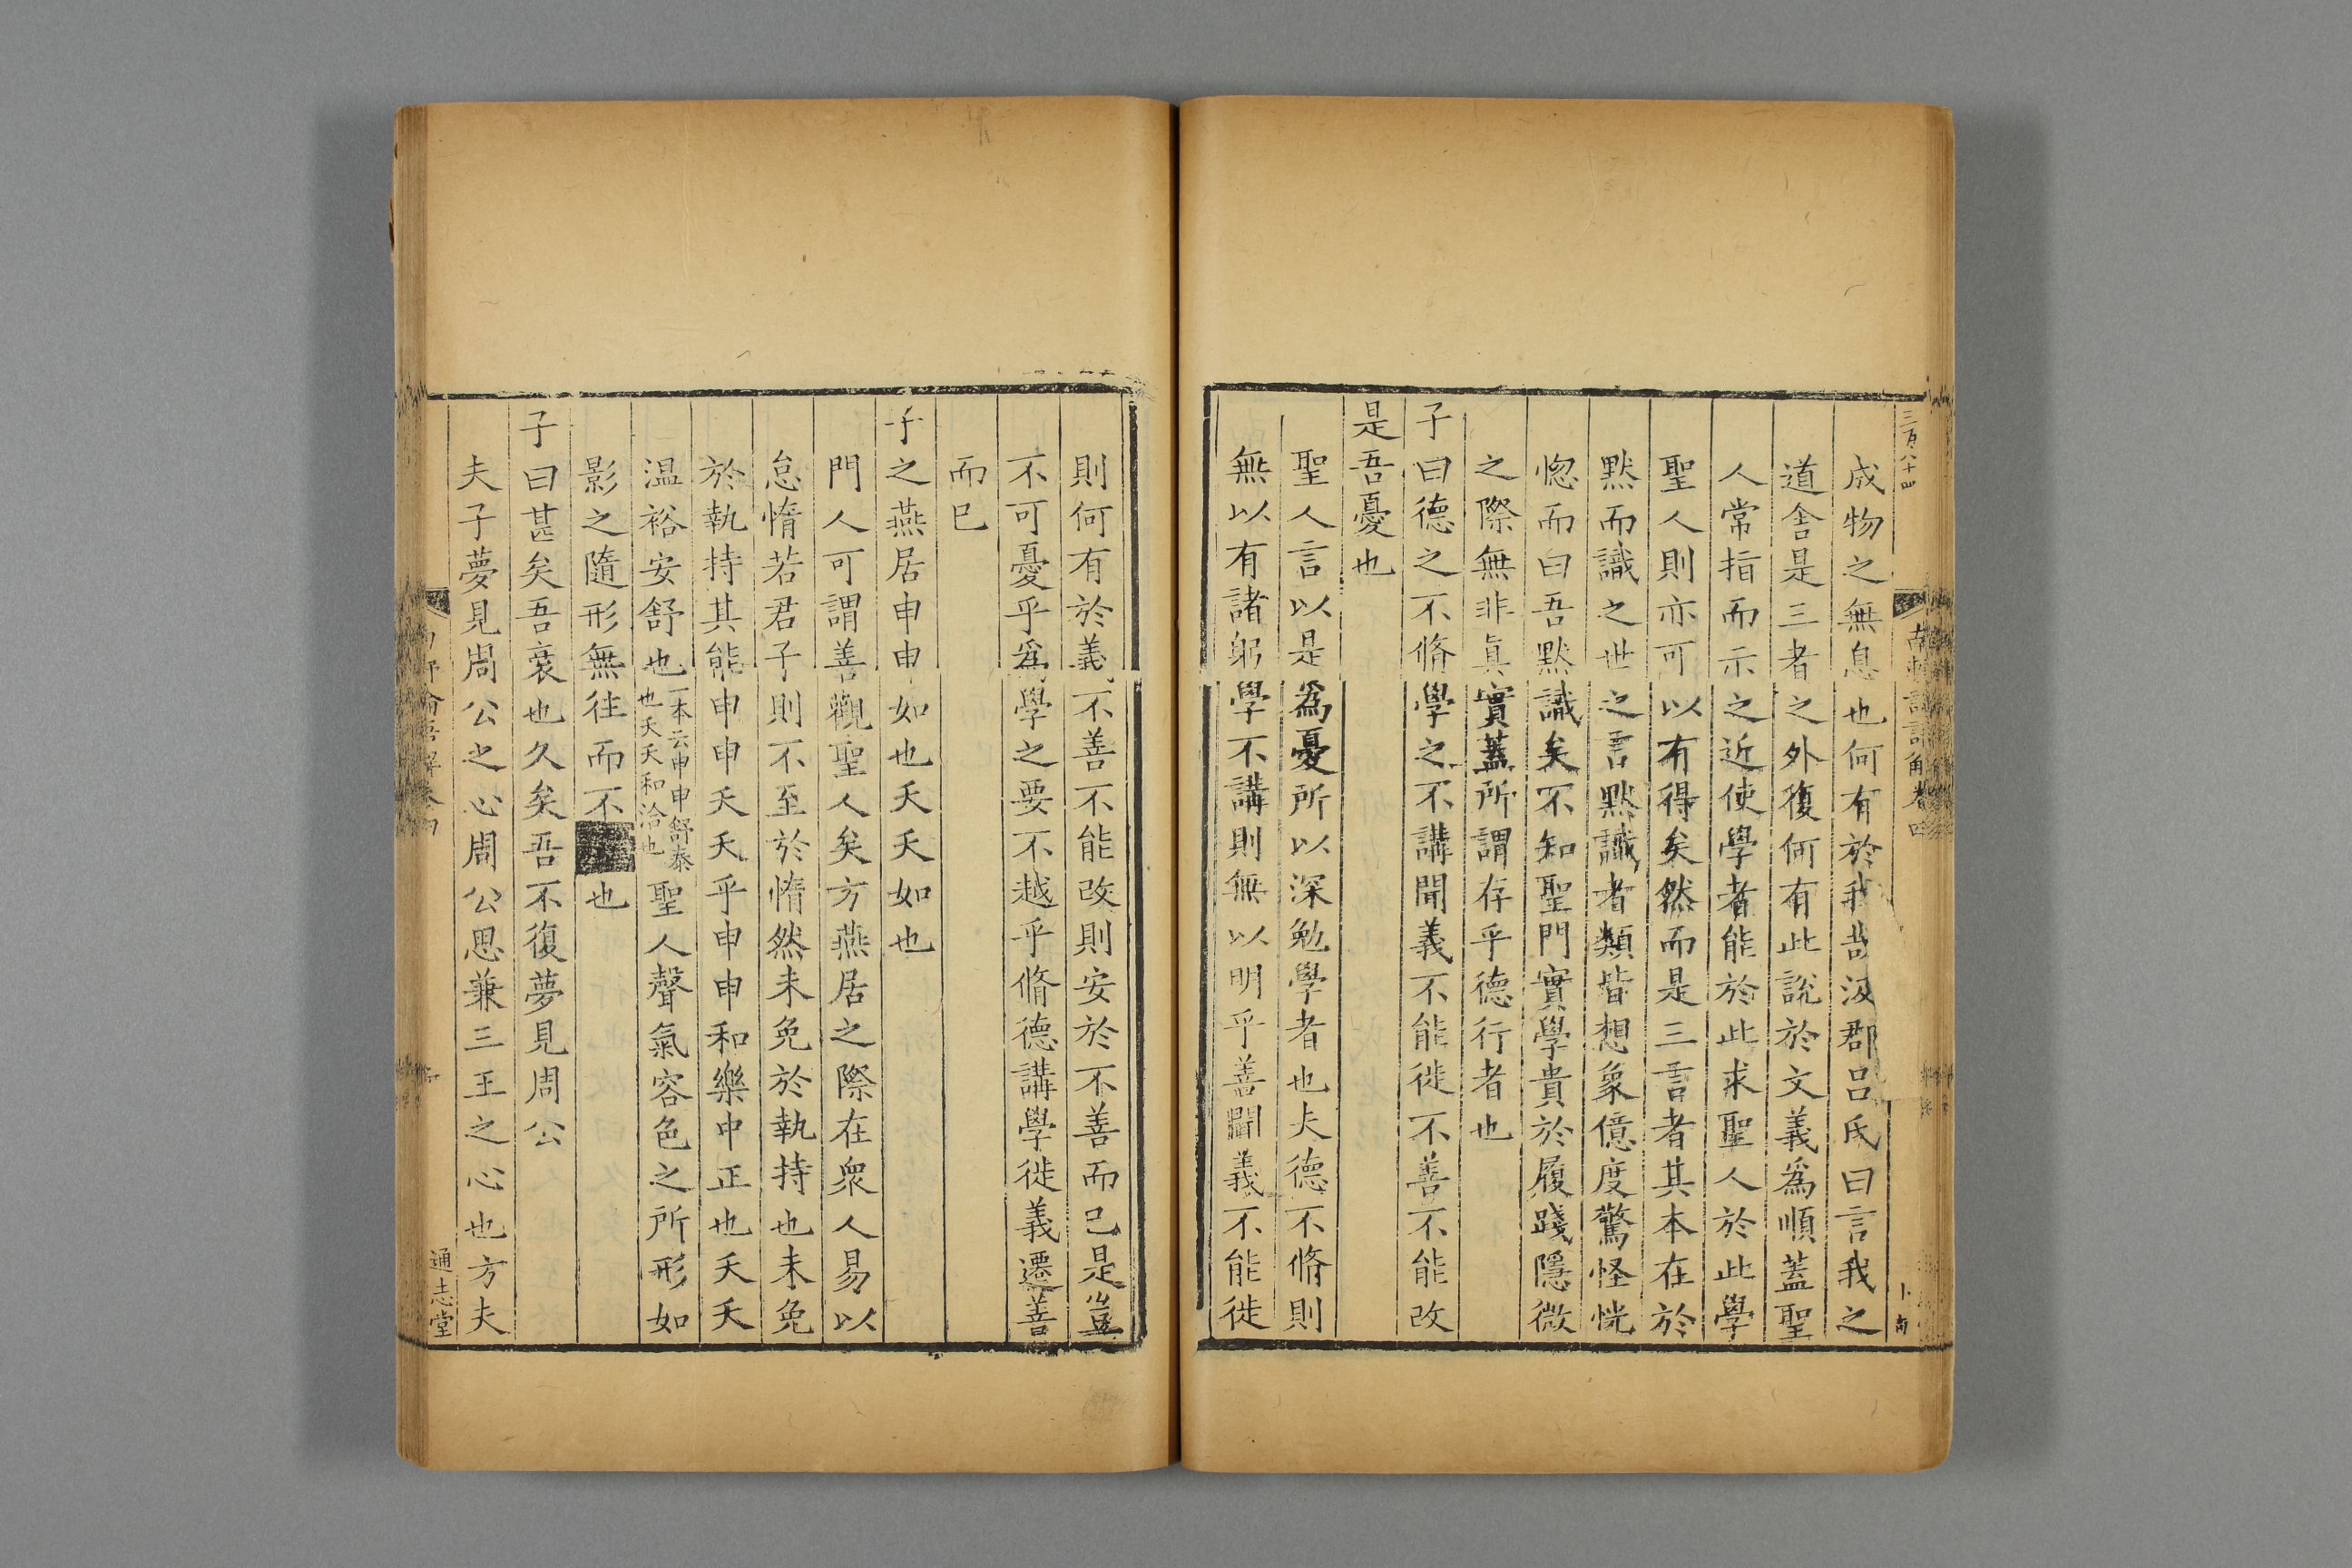 三百八十四
南軒論語解卷四
成物之無息也何有於我哉汲郡呂氏曰言我之
道舍是三者之外復何有此說於文義爲順蓋聖
人常指而示之近使學者能於此求聖人於此學
聖人則亦可以有得矣然而是三言者其本在於
黙而識之世之言黙識者類皆想象億度驚怪恍
惚而曰吾黙識矣不知聖門實學貴於履踐隱微
之際無非眞實蓋所謂存乎德行者也
子曰德之不脩學之不講聞義不能徙不善不能改
是吾憂也
聖人言以是爲憂所以深勉學者也夫德不脩則
無以有諸躬學不講則無以明乎善聞義不能徙
則何有於義不善不能改則安於不善而已是豈
不可憂乎爲學之要不越乎脩德講學徙義遷善
而已
子之燕居申申如也夭夭如也
門人可謂善觀聖人矣方燕居之際在衆人易以
怠惰若君子則不至於惰然未免於執持也未免
於執持其能申申夭夭乎申申和樂中正也夭夭
温裕安舒也一本云申申舒泰也夭夭和洽也聖人聲氣容色之所形如
影之隨形無往而不也
子曰甚矣吾衰也久矣吾不復夢見周公
夫子夢見周公之心周公思兼三王之心也方夫
通志堂